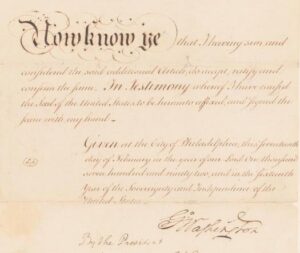 Now know ye that I having seen and
considered the said additional Article, do accept, ratify and
confirm the same. In Testimony whereof I have caused
the Seal of the United States to be hereunto affixed, and signed the
same with my hand.
Given at the City of Philadelphia, this seventeenth
day of February in the year of our Lord One thousand
seven hundred and ninety two, and in the sixteenth
Year of the Sovereignty and Independence of the
United States.
G. Washington
By the President